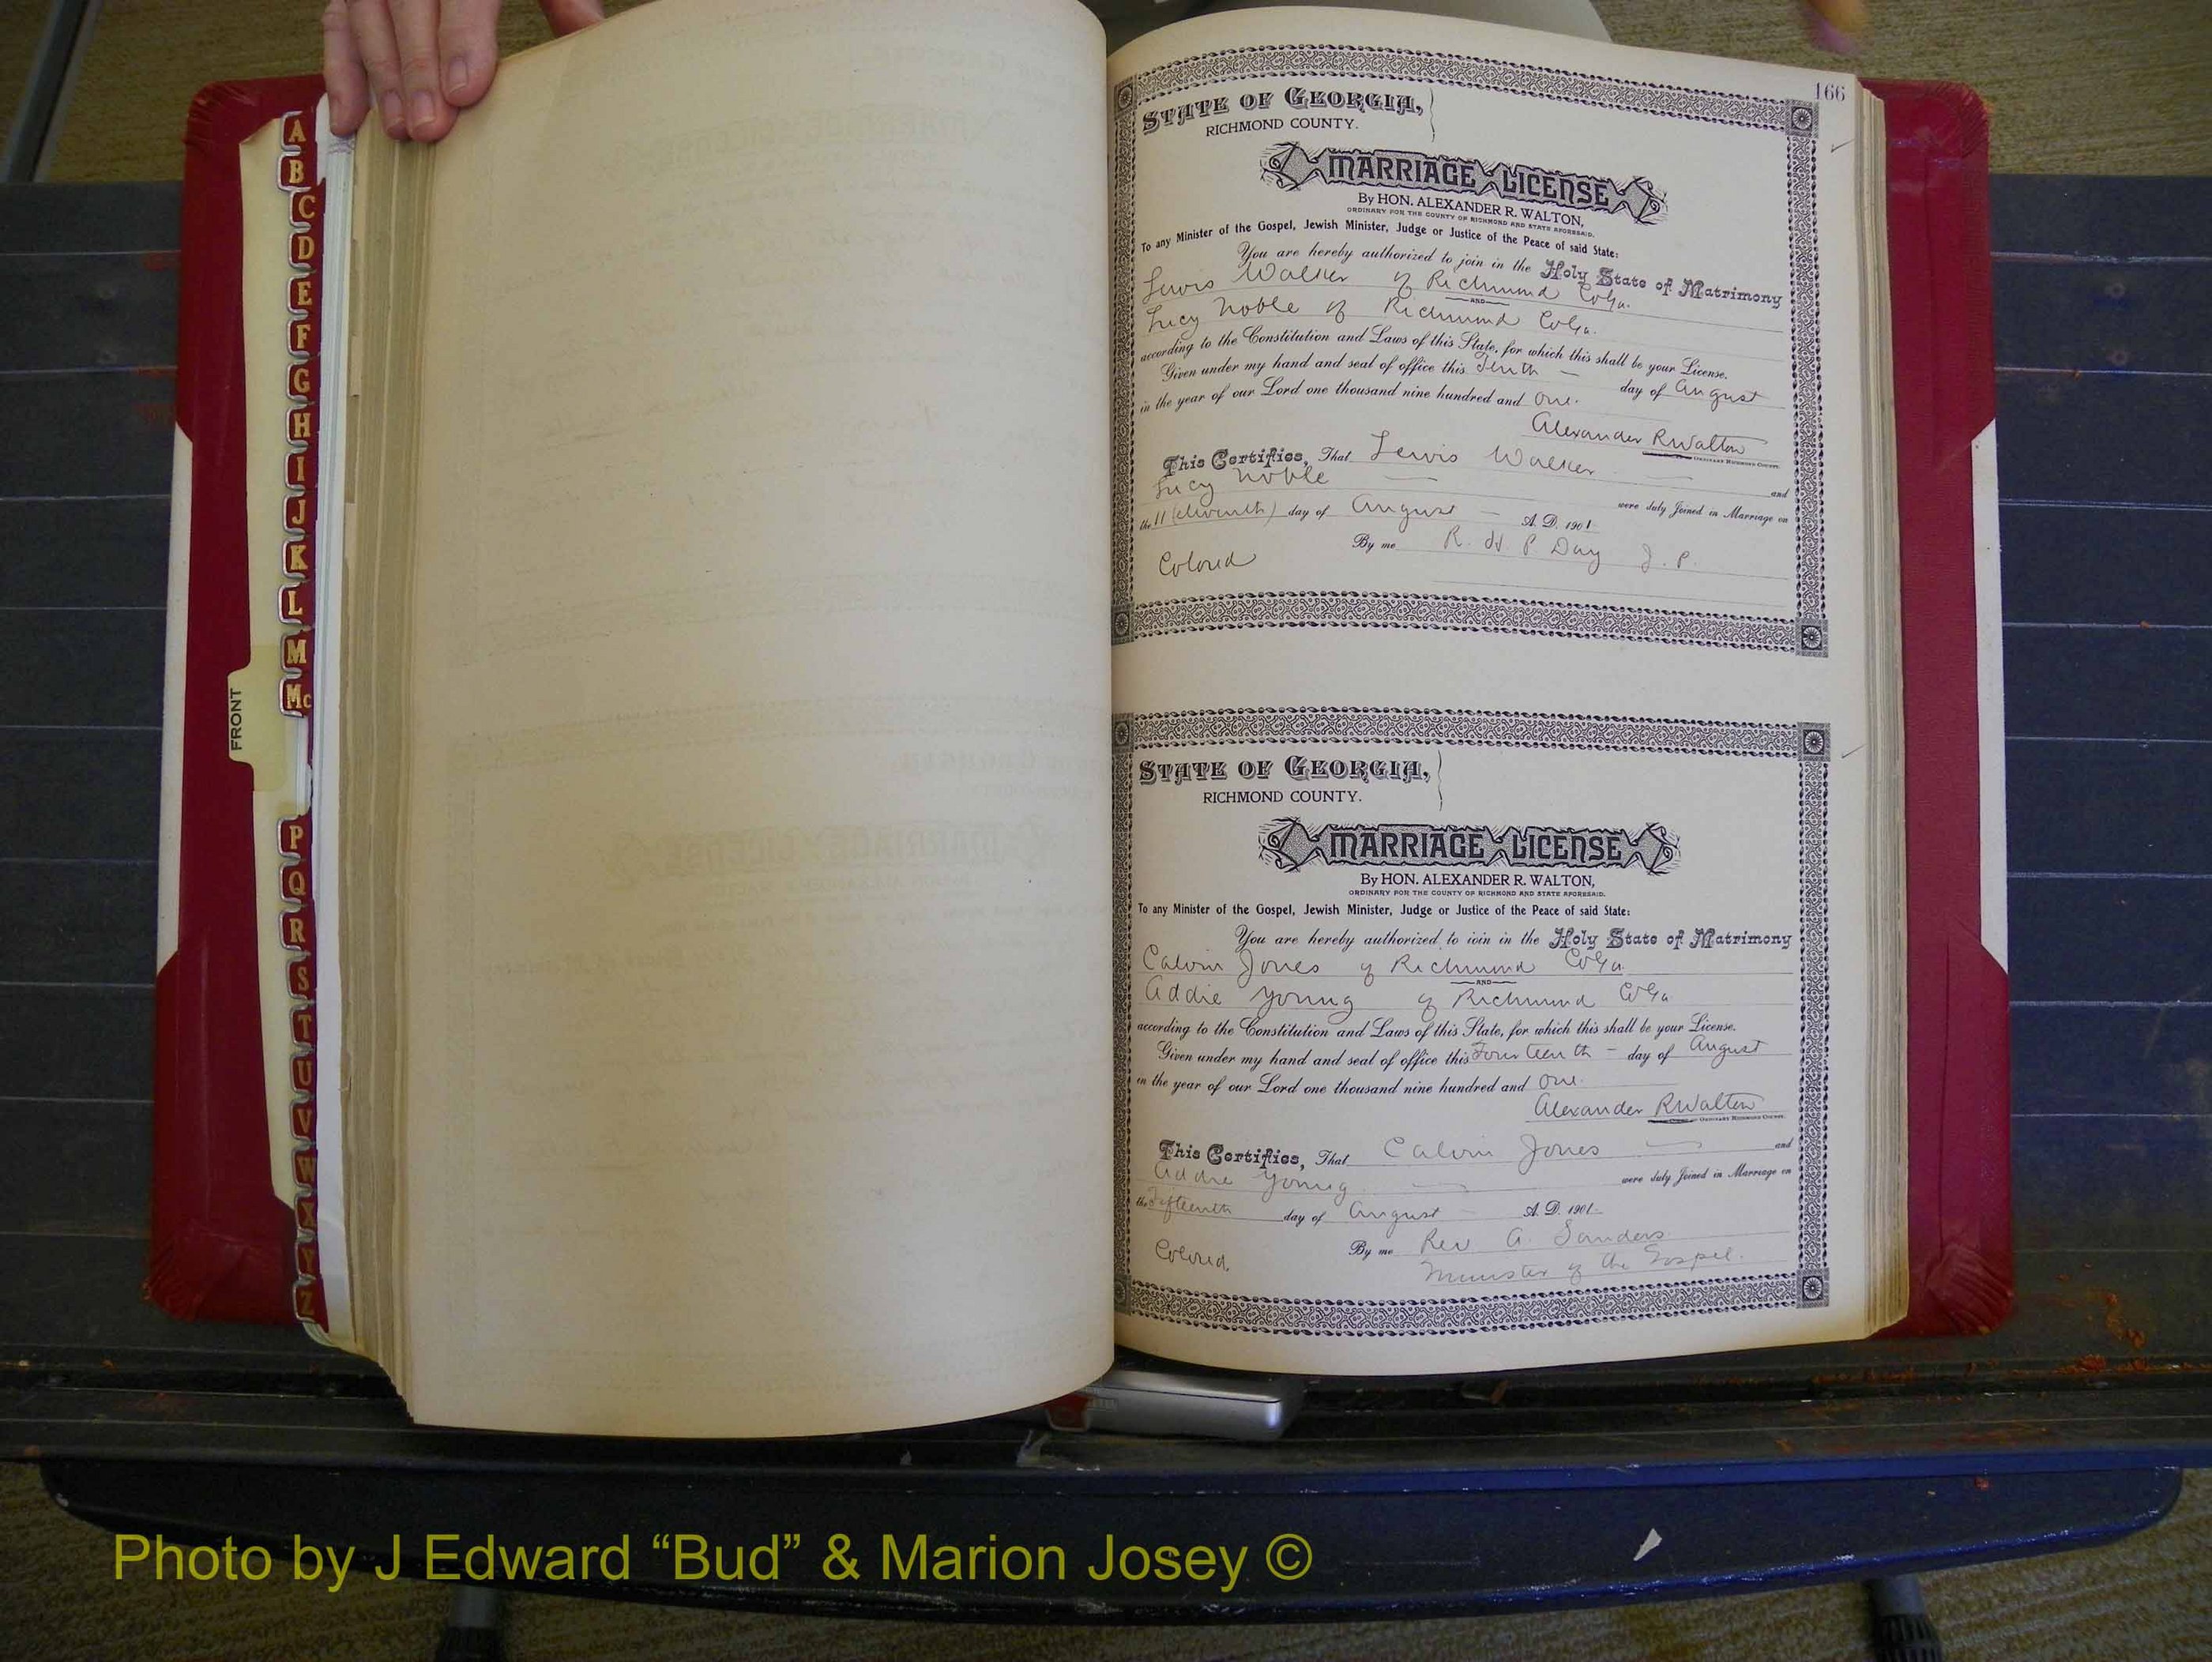 A
B
C
D
E
F
G
H
I
J
K
L
M
Mc
FRONT
P
Q
R
S
T
U
V
W
X
Y
Z
166
STATE OF GEORGIA,
RICHMOND COUNTY.
MARRIAGE LICENSE
By HON. ALEXANDER R. WALTON,
ORDINARY FOR THE COUNTY OF RICHMOND AND STATE AFORESAID.
To any Minister of the Gospel, Jewish Minister, Judge or Justice of the Peace of said State:
You are hereby authorized to join in the Holy State of Matrimony
Lewis Walker of Richmond Co Ga.
AND
Lucy Noble of Richmond Co Ga.
according to the Constitution and Laws of this State, for which this shall be your License.
Given under my hand and seal of office this Tenth — day of August
in the year of our Lord one thousand nine hundred and one.
Alexander R Walton
ORDINARY RICHMOND COUNTY.
This Certifies, That Lewis Walker — and
Lucy Noble — were duly Joined in Marriage on
the 11 (eleventh) day of August — A. D. 1901
By me R. H. P Day J. P.
Colored
STATE OF GEORGIA,
RICHMOND COUNTY.
MARRIAGE LICENSE
By HON. ALEXANDER R. WALTON,
ORDINARY FOR THE COUNTY OF RICHMOND AND STATE AFORESAID.
To any Minister of the Gospel, Jewish Minister, Judge or Justice of the Peace of said State:
You are hereby authorized to join in the Holy State of Matrimony
Calvin Jones of Richmond Co Ga
AND
Addie Young of Richmond Co Ga
according to the Constitution and Laws of this State, for which this shall be your License.
Given under my hand and seal of office this Fourteenth — day of August
in the year of our Lord one thousand nine hundred and one.
Alexander R Walton
ORDINARY RICHMOND COUNTY.
This Certifies, That Calvin Jones — and
Addie Young — were duly Joined in Marriage on
the Fifteenth day of August — A. D. 1901.
By me Rev A. Sanders
Colored Minister of the Gospel.
Photo by J Edward “Bud” & Marion Josey ©